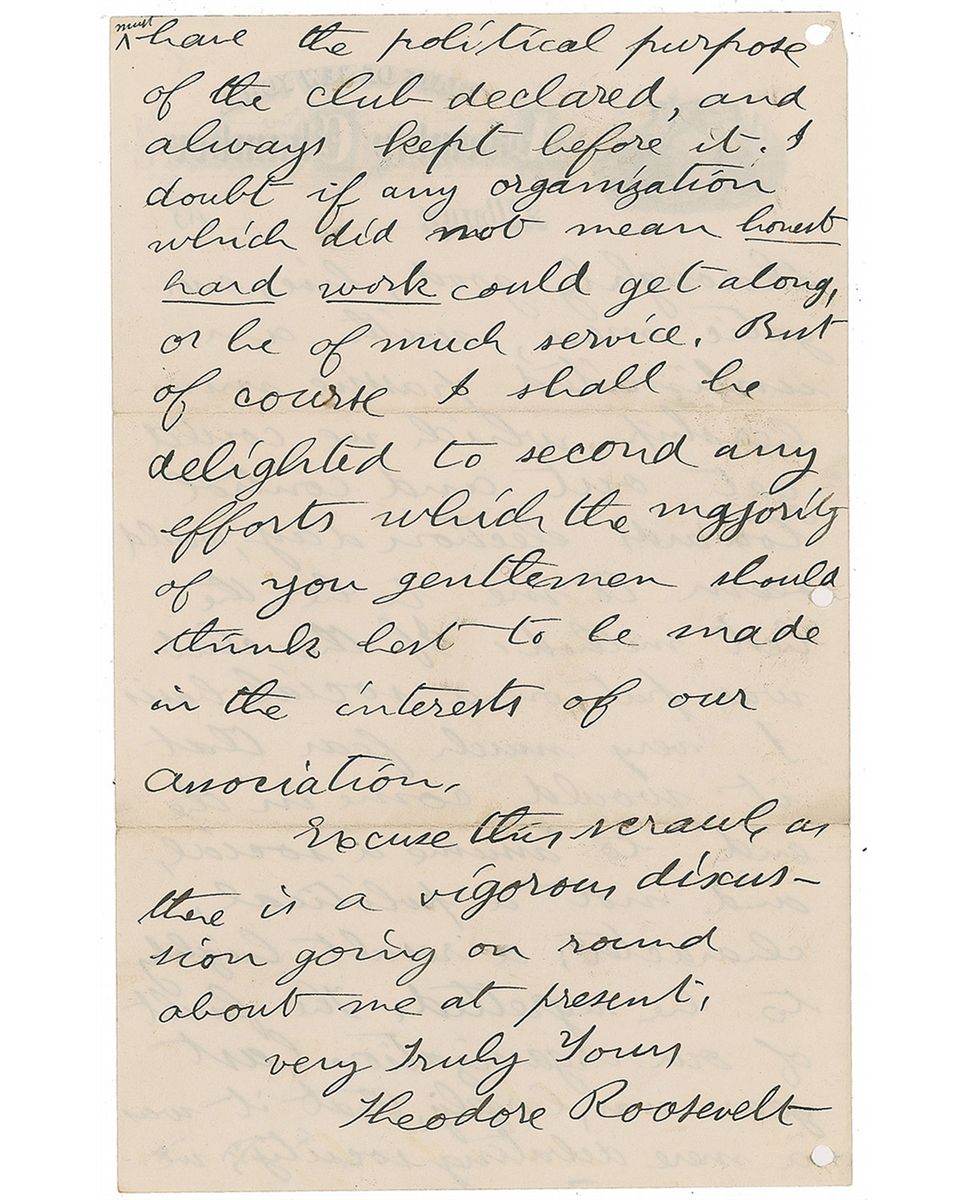 must
^have the political purpose
of the club declared, and
always kept before it. I
doubt if any organization
which did not mean honest
hard work could get along,
or be of much service. But
of course I shall be
delighted to second any
efforts which the majority
of you gentlemen should
think best to be made
in the interests of our
association.
Excuse this scrawl, as
there is a vigorous discus-
sion going on round
about me at present.
Very Truly Yours
Theodore Roosevelt